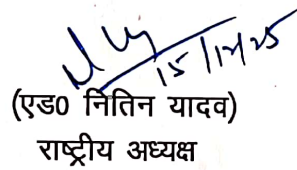 15/12/25
(एड0 नितिन यादव)
राष्ट्रीय अध्यक्ष